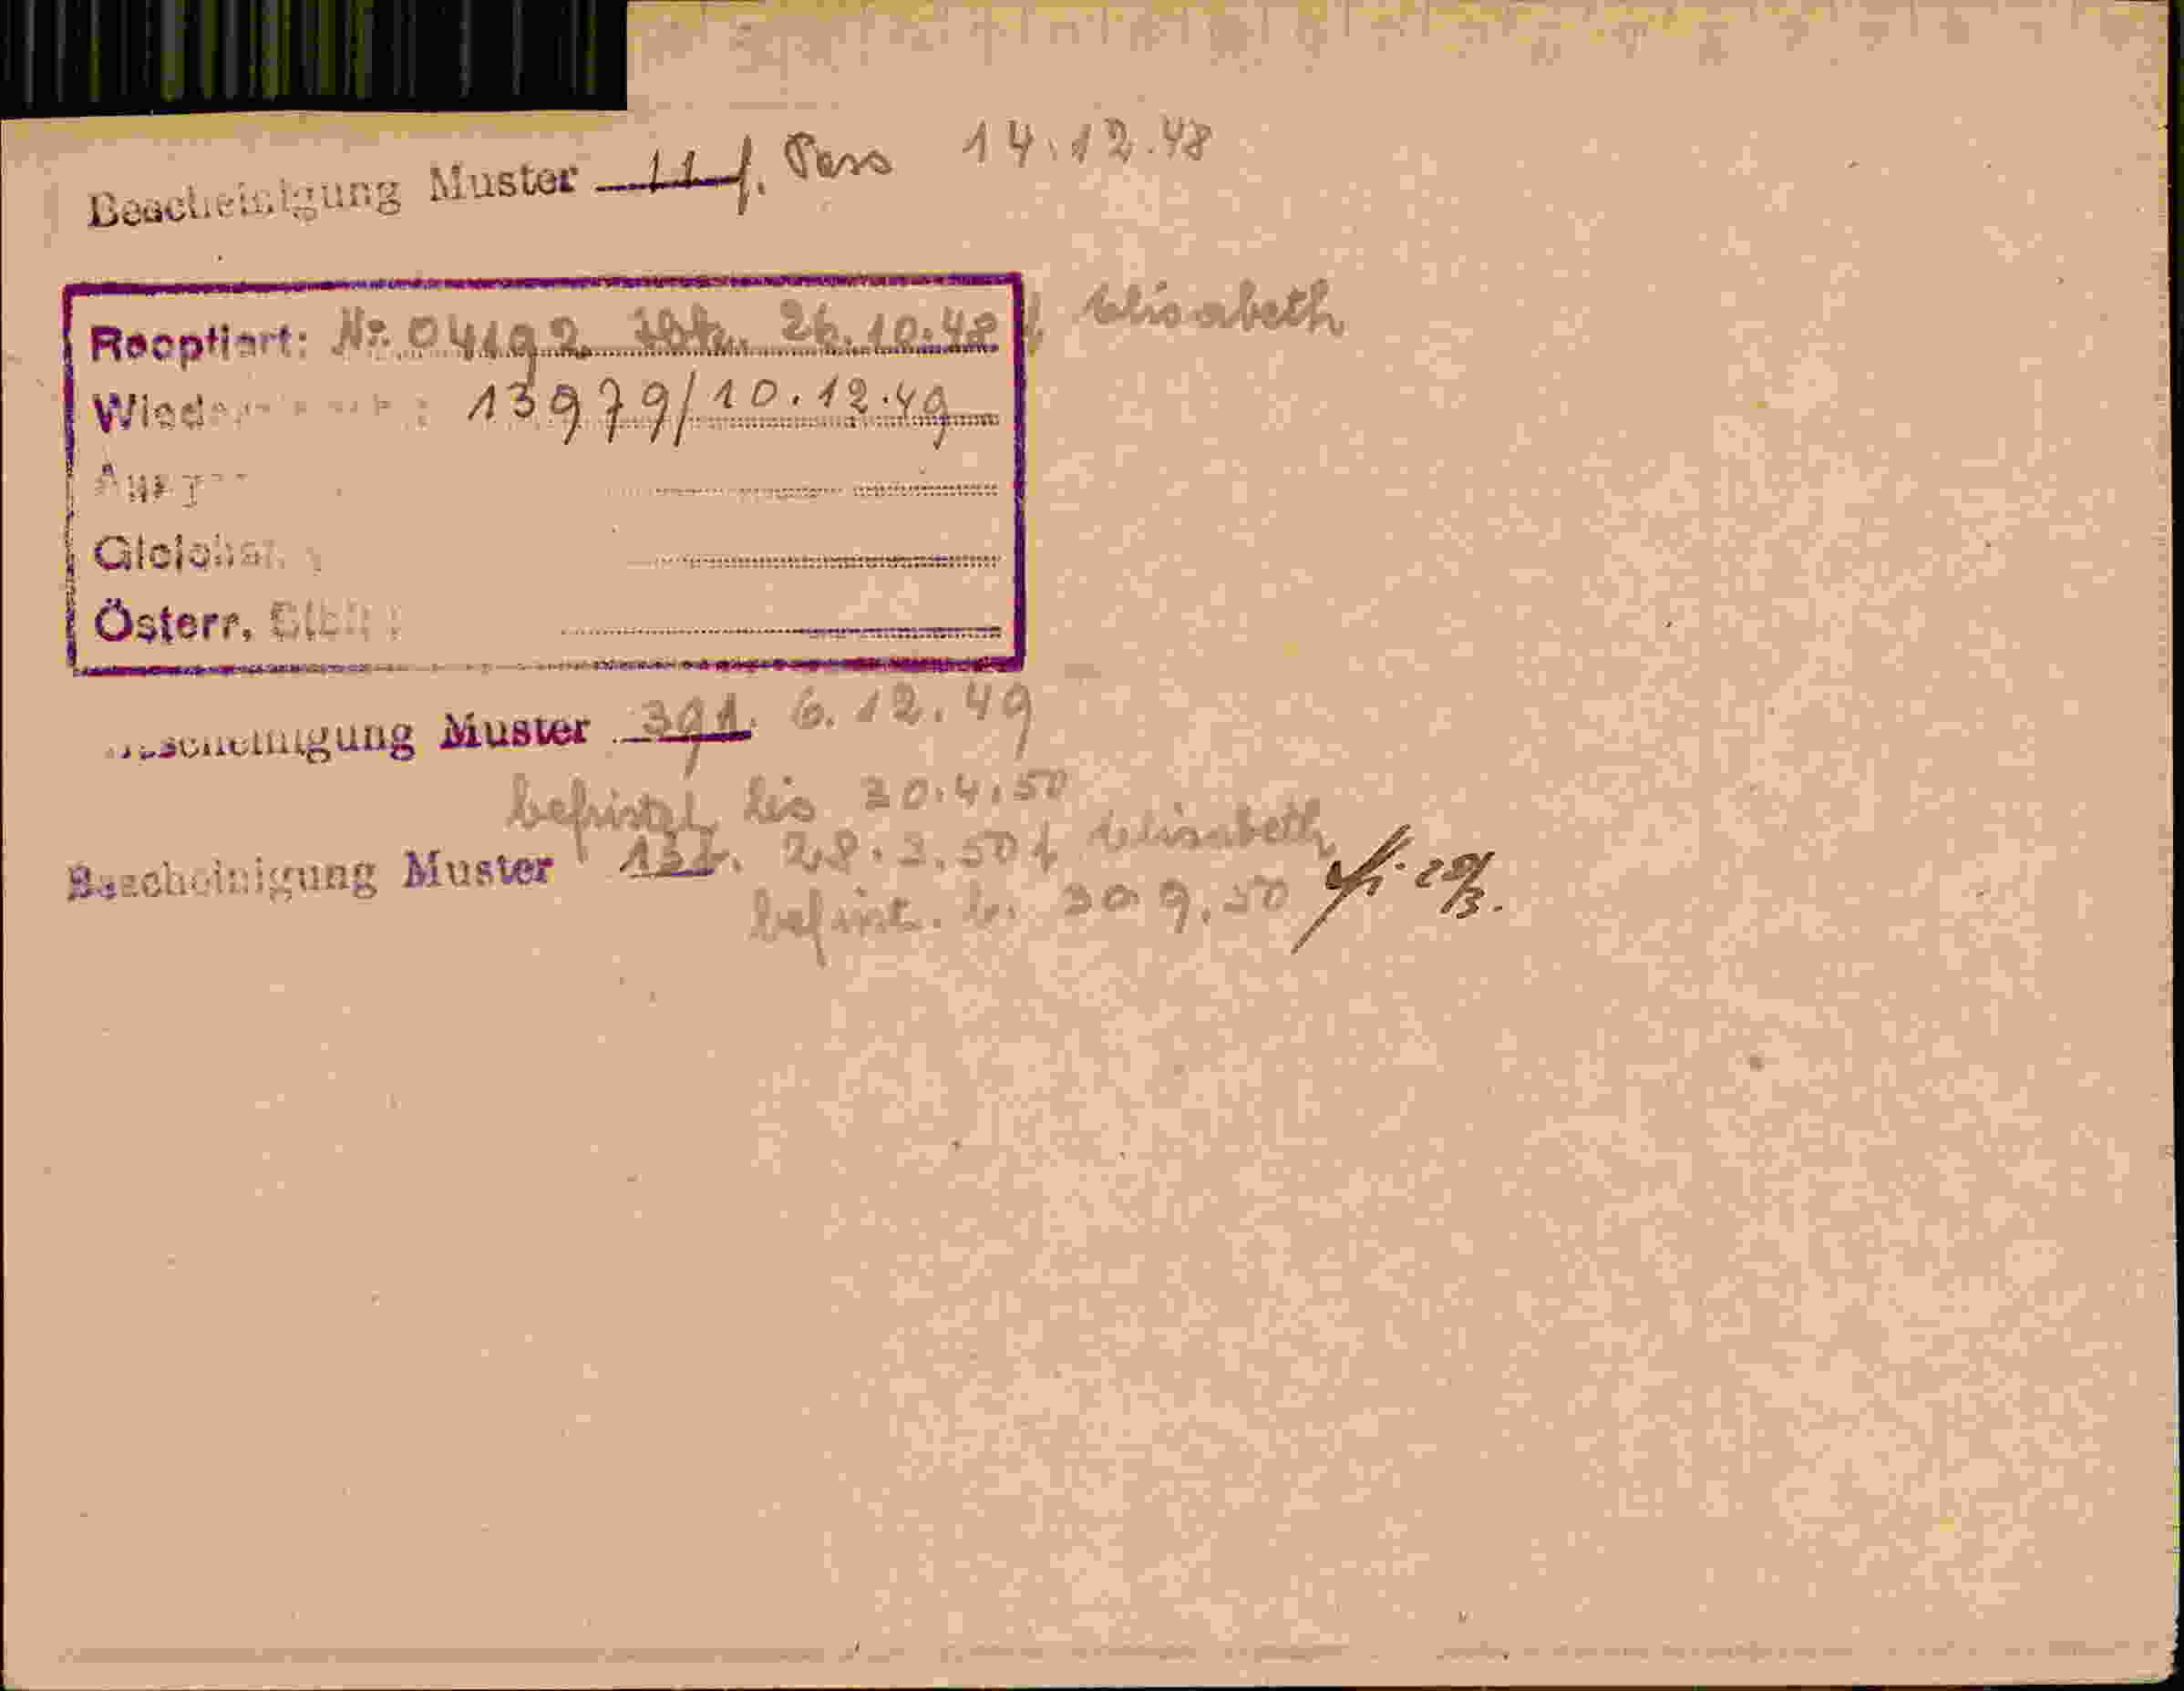 Bescheinigung Muster 11 f. Pass 14.12.48
Reoptiert: No. 04192 26.10.48 f. Elisabeth
13979/10.12.49
Österr.
Bescheinigung Muster 391. 6.12.49
befristet bis 30.4.50
Bescheinigung Muster 28.3.50 f Elisabeth
befrist. b. 30.9.50 28/3.